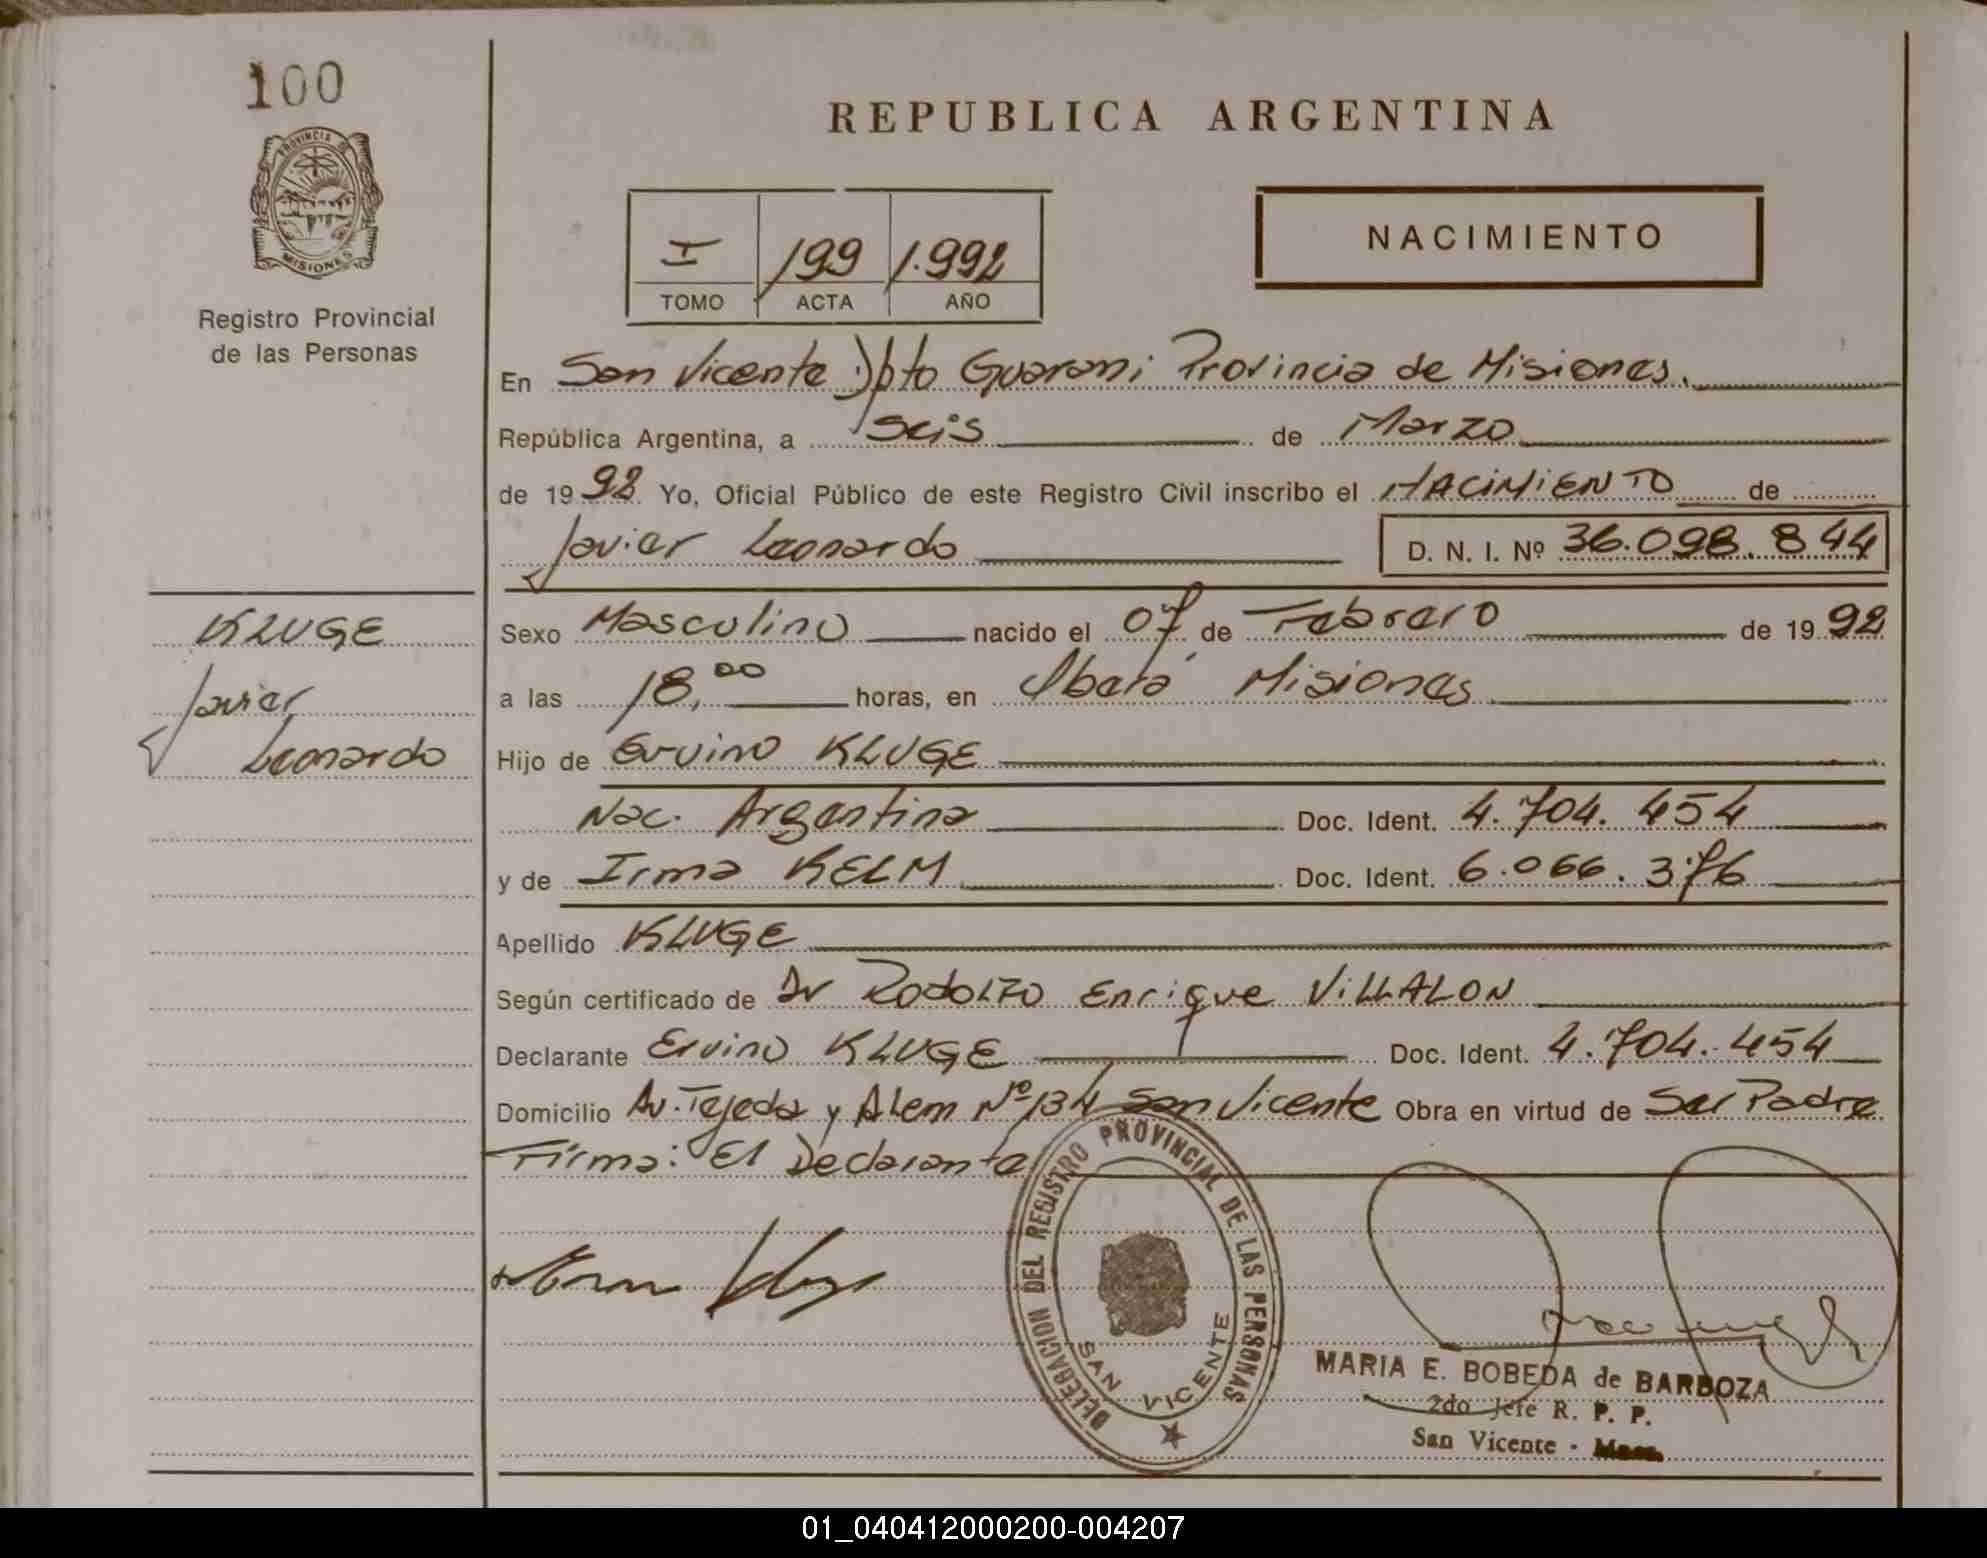 100
PROVINCIA DE
MISIONES
Registro Provincial
de las Personas
REPUBLICA ARGENTINA
I 199 1.992
TOMO ACTA AÑO
NACIMIENTO
En San Vicente Dpto Guarani Provincia de Misiones.
República Argentina, a Seis de Marzo
de 1992 Yo, Oficial Público de este Registro Civil inscribo el NACIMIENTO de
Javier Leonardo D. N. I. Nº 36.098.844
KLUGE
Javier
Leonardo
Sexo Masculino nacido el 07 de Febrero de 1992
a las 18,00 horas, en Oberá Misiones
Hijo de Ervino KLUGE
Nac. Argentina Doc. Ident. 4.704.454
y de Irma KELM Doc. Ident. 6.066.376
Apellido KLUGE
Según certificado de Dr Rodolfo Enrique VILLALON
Declarante Ervino KLUGE Doc. Ident. 4.704.454
Domicilio Av. Tejeda y Alem Nº 134 San Vicente Obra en virtud de Ser Padre
Firma: El Declarante
DELEGACION DEL REGISTRO PROVINCIAL DE LAS PERSONAS
SAN VICENTE
MARIA E. BOBEDA de BARBOZA
2do Jefe R. P. P.
San Vicente -
01_040412000200-004207